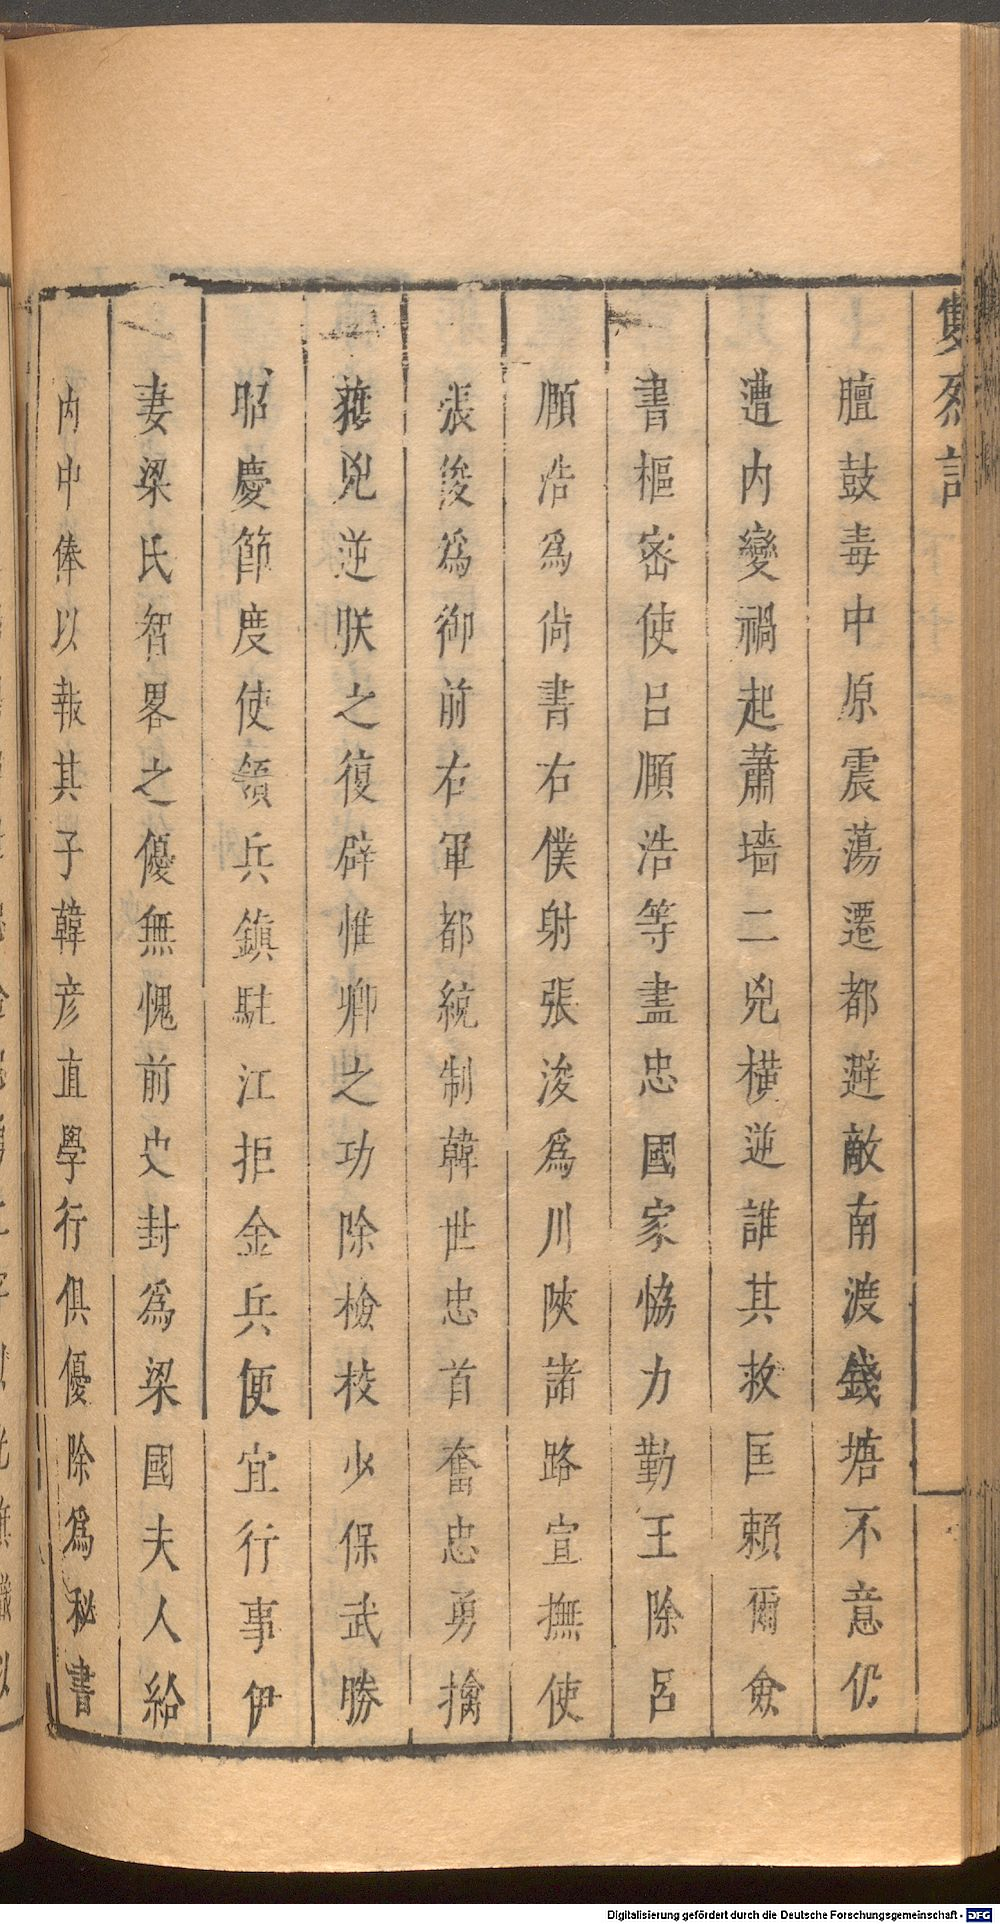 雙烈記
膻鼓毒中原震蕩遷都避敵南渡錢塘不意仍
遭内變禍起蕭墻二兇橫逆誰其救匡賴爾僉
書樞密使吕順浩等盡忠國家恊力勤王除吕
頥浩爲尚書右僕射張浚爲川陝諸路宣撫使
張俊爲御前右軍都統制韓世忠首奮忠勇擒
兇逆朕之復辟惟卿之功除檢校少保武勝
昭慶節度使領兵鎮駐江拒金兵便宜行事伊
妻梁氏智畧之優無愧前史封爲梁國夫人給
内中俸以報其子韓彦直學行俱優除爲秘書
Digitalisierung gefördert durch die Deutsche Forschungsgemeinschaft - DFG